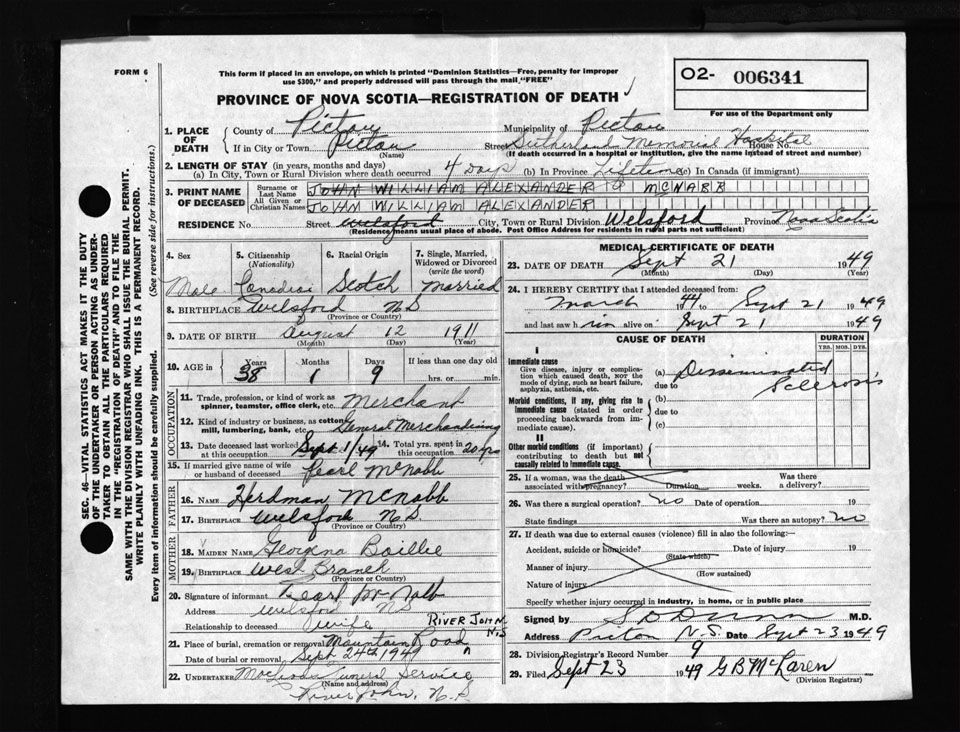 FORM 6
This form if placed in an envelope, on which is printed "Dominion Statistics—Free, penalty for improper
use $300," and properly addressed will pass through the mail "FREE"
O2- 006341
For use of the Department only
PROVINCE OF NOVA SCOTIA—REGISTRATION OF DEATH
1. PLACE OF DEATH County of Pictou Municipality of Pictou
If in City or Town Pictou (Name) Street Sutherland Memorial Hospital House No.
(If death occurred in a hospital or institution, give the name instead of street and number)
2. LENGTH OF STAY (in years, months and days)
(a) In City, Town or Rural Division where death occurred 4 days (b) In Province Lifetime (c) In Canada (if immigrant)
3. PRINT NAME OF DECEASED Surname or Last Name JOHN WILLIAM ALEXANDER MCNABB
All Given or Christian Names JOHN WILLIAM ALEXANDER
RESIDENCE No. Street Welsford City, Town or Rural Division Welsford Province Nova Scotia
(Residence means usual place of abode. Post Office Address for residents in rural parts not sufficient)
SEC. 46—VITAL STATISTICS ACT MAKES IT THE DUTY
OF THE UNDERTAKER OR PERSON ACTING AS UNDER-
TAKER TO OBTAIN ALL THE PARTICULARS REQUIRED
IN THE "REGISTRATION OF DEATH" AND TO FILE THE
SAME WITH THE DIVISION REGISTRAR WHO SHALL ISSUE THE BURIAL PERMIT.
WRITE PLAINLY WITH UNFADING INK. THIS IS A PERMANENT RECORD.
Every item of information should be carefully supplied. (See reverse side for instructions.)
4. Sex 5. Citizenship (Nationality) 6. Racial Origin 7. Single, Married, Widowed or Divorced (write the word)
Male Canadian Scotch Married
8. BIRTHPLACE Welsford N S
(Province or Country)
9. DATE OF BIRTH August 12 1911
(Month) (Day) (Year)
10. AGE in Years Months Days If less than one day old
38 1 9 hrs. or min.
OCCUPATION
11. Trade, profession, or kind of work as
spinner, teamster, office clerk, etc. Merchant
12. Kind of industry or business, as cotton
mill, lumbering, bank, etc. General Merchandising
13. Date deceased last worked at this occupation Sept 1/49 14. Total yrs. spent in this occupation 20 yrs
15. If married give name of wife
or husband of deceased Pearl McNabb
FATHER
16. NAME Herdman McNabb
17. BIRTHPLACE Welsford N.S.
(Province or Country)
MOTHER
18. MAIDEN NAME Georgena Baillie
19. BIRTHPLACE West Branch
(Province or Country)
20. Signature of informant Pearl McNabb
Address Welsford N S
Relationship to deceased Wife
RIVER JOHN N.S
21. Place of burial, cremation or removal Mountain Road
Date of burial or removal Sept 24th 1949
22. UNDERTAKER MacLeods Funeral Service
(Name and address)
River John, N.S
MEDICAL CERTIFICATE OF DEATH
23. DATE OF DEATH Sept 21 1949
(Month) (Day) (Year)
24. I HEREBY CERTIFY that I attended deceased from:
March 44 to Sept 21 1949
and last saw him alive on Sept 21 1949
CAUSE OF DEATH DURATION
YRS. MOS. DYS.
I
Immediate cause
Give disease, injury or complica-
tion which caused death, not the
mode of dying, such as heart failure,
asphyxia, asthenia, etc.
(a) Disseminated
due to Sclerosis
Morbid conditions, if any, giving rise to
immediate cause (stated in order
proceeding backwards from im-
mediate cause).
(b)
due to
(c)
II
Other morbid conditions (if important)
contributing to death but not
causally related to immediate cause.
25. If a woman, was the death
associated with pregnancy? Duration weeks. Was there a delivery?
26. Was there a surgical operation? no Date of operation 19
State findings Was there an autopsy? no
27. If death was due to external causes (violence) fill in also the following:—
Accident, suicide or homicide? Date of injury 19
(State which)
Manner of injury
(How sustained)
Nature of injury
Specify whether injury occurred in industry, in home, or in public place
Signed by M.D.
Address Pictou N.S. Date Sept 23 1949
28. Division Registrar's Record Number 9
29. Filed Sept 23 1949 G B McLaren
(Division Registrar)